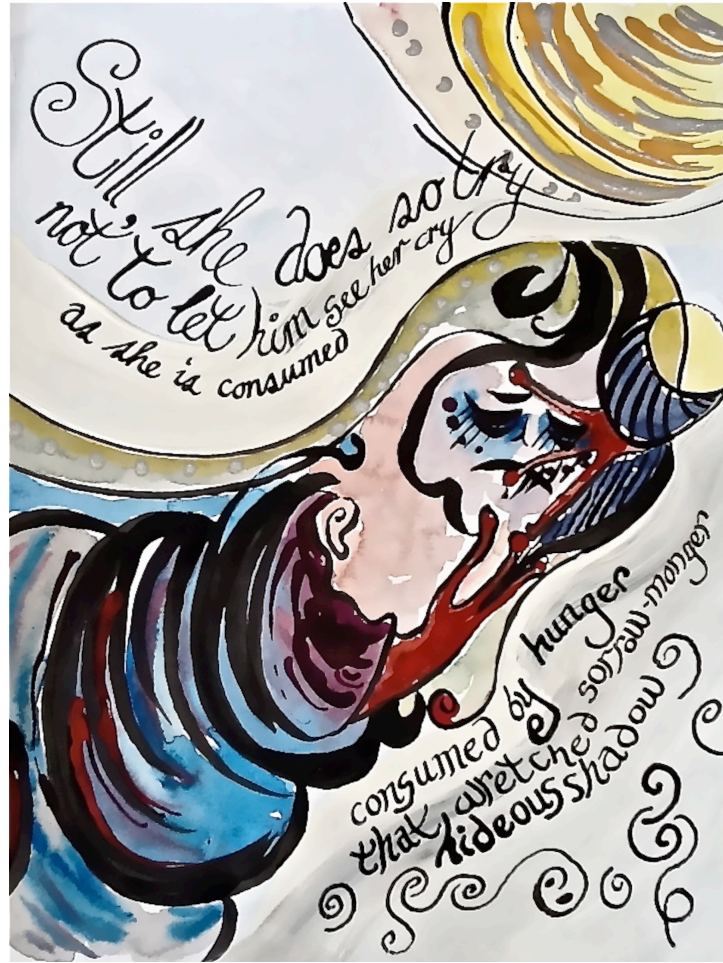 Still, she does so try
not to let him see her cry
as she is consumed
consumed by hunger
that wretched sorrow-monger
hideous shadow